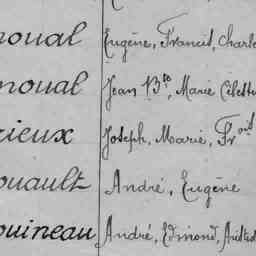 noual Eugène, Francis, Charle
noual Jean Bte, Marie Célesti
rieux Joseph, Marie, Frois
ouault André, Eugène
ouineau André, Edmond, Aristid